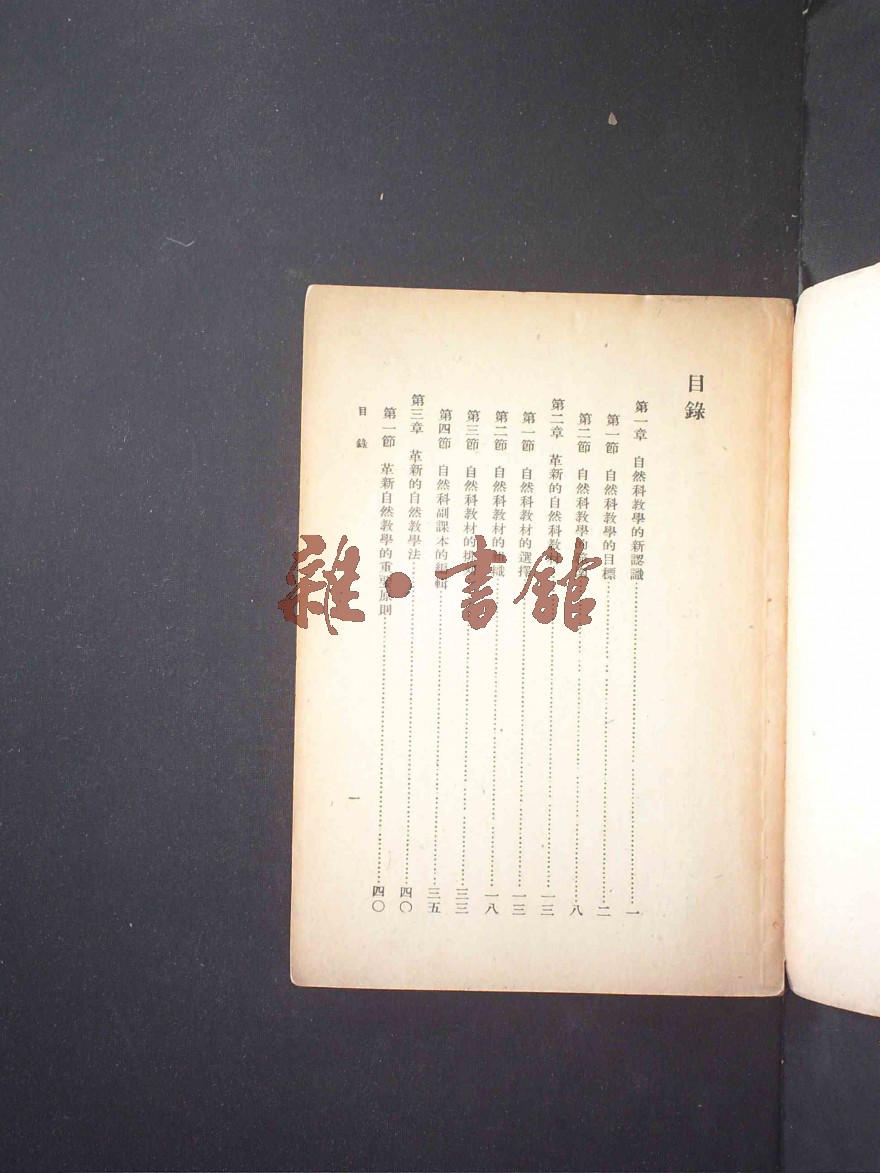 目錄
第一章 自然科教學的新認識……一
第一節 自然科教學的目標……二
第二節 自然科教學的……八
第二章 革新的自然科教……一三
第一節 自然科教材的選擇……一三
第二節 自然科教材的組織……一八
第三節 自然科教材的……三三
第四節 自然科副課本的編輯……三五
第三章 革新的自然教學法……四〇
第一節 革新自然教學的重要原則……四〇
目錄
一
雜·書館